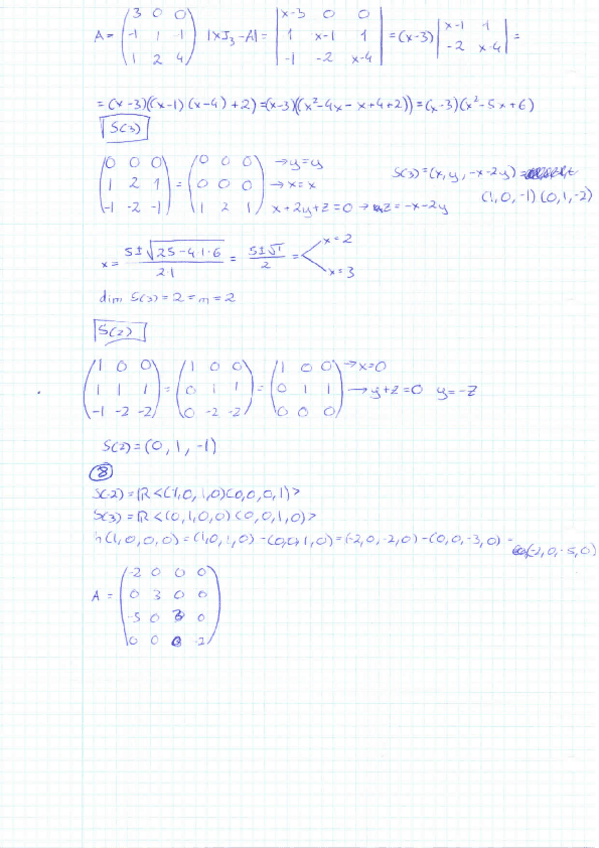 A = (3 0 0; -1 1 -1; 1 2 4) |xI₃-A| = |x-3 0 0; 1 x-1 1; -1 -2 x-4| = (x-3) |x-1 1; -2 x-4| =
= (x-3)((x-1)(x-4)+2) = (x-3)((x²-4x-x+4+2)) = (x-3)(x²-5x+6)
S(3)
(0 0 0; 1 2 1; -1 -2 -1) = (0 0 0; 0 0 0; 1 2 1) → y=y → x=x x+2y+z=0 → z=-x-2y S(3)=(x, y, -x-2y) =
(1, 0, -1) (0, 1, -2)
x = 5±√25-4·1·6 / 2·1 = 5±√1 / 2 = x=2 x=3
dim S(3) = 2 = m = 2
S(2)
(1 0 0; 1 1 1; -1 -2 -2) = (1 0 0; 0 1 1; 0 -2 -2) = (1 0 0; 0 1 1; 0 0 0) → x=0 → y+z=0 y=-z
S(2) = (0, 1, -1)
8
S(-2) = R<(1,0,1,0)(0,0,0,1)>
S(3) = R<(0,1,0,0)(0,0,1,0)>
h(1,0,0,0) = (1,0,1,0) - (0,0,1,0) = (-2,0,-2,0) - (0,0,-3,0) =
(-2,0,-5,0)
A = (-2 0 0 0; 0 3 0 0; -5 0 3 0; 0 0 0 -2)